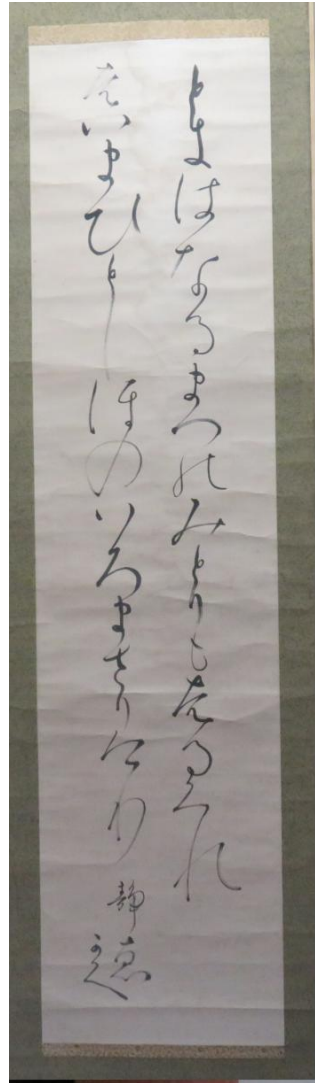 ときはなるまつのみとりもはるくれ
はいまひとしほのいろまさりけり
静恵